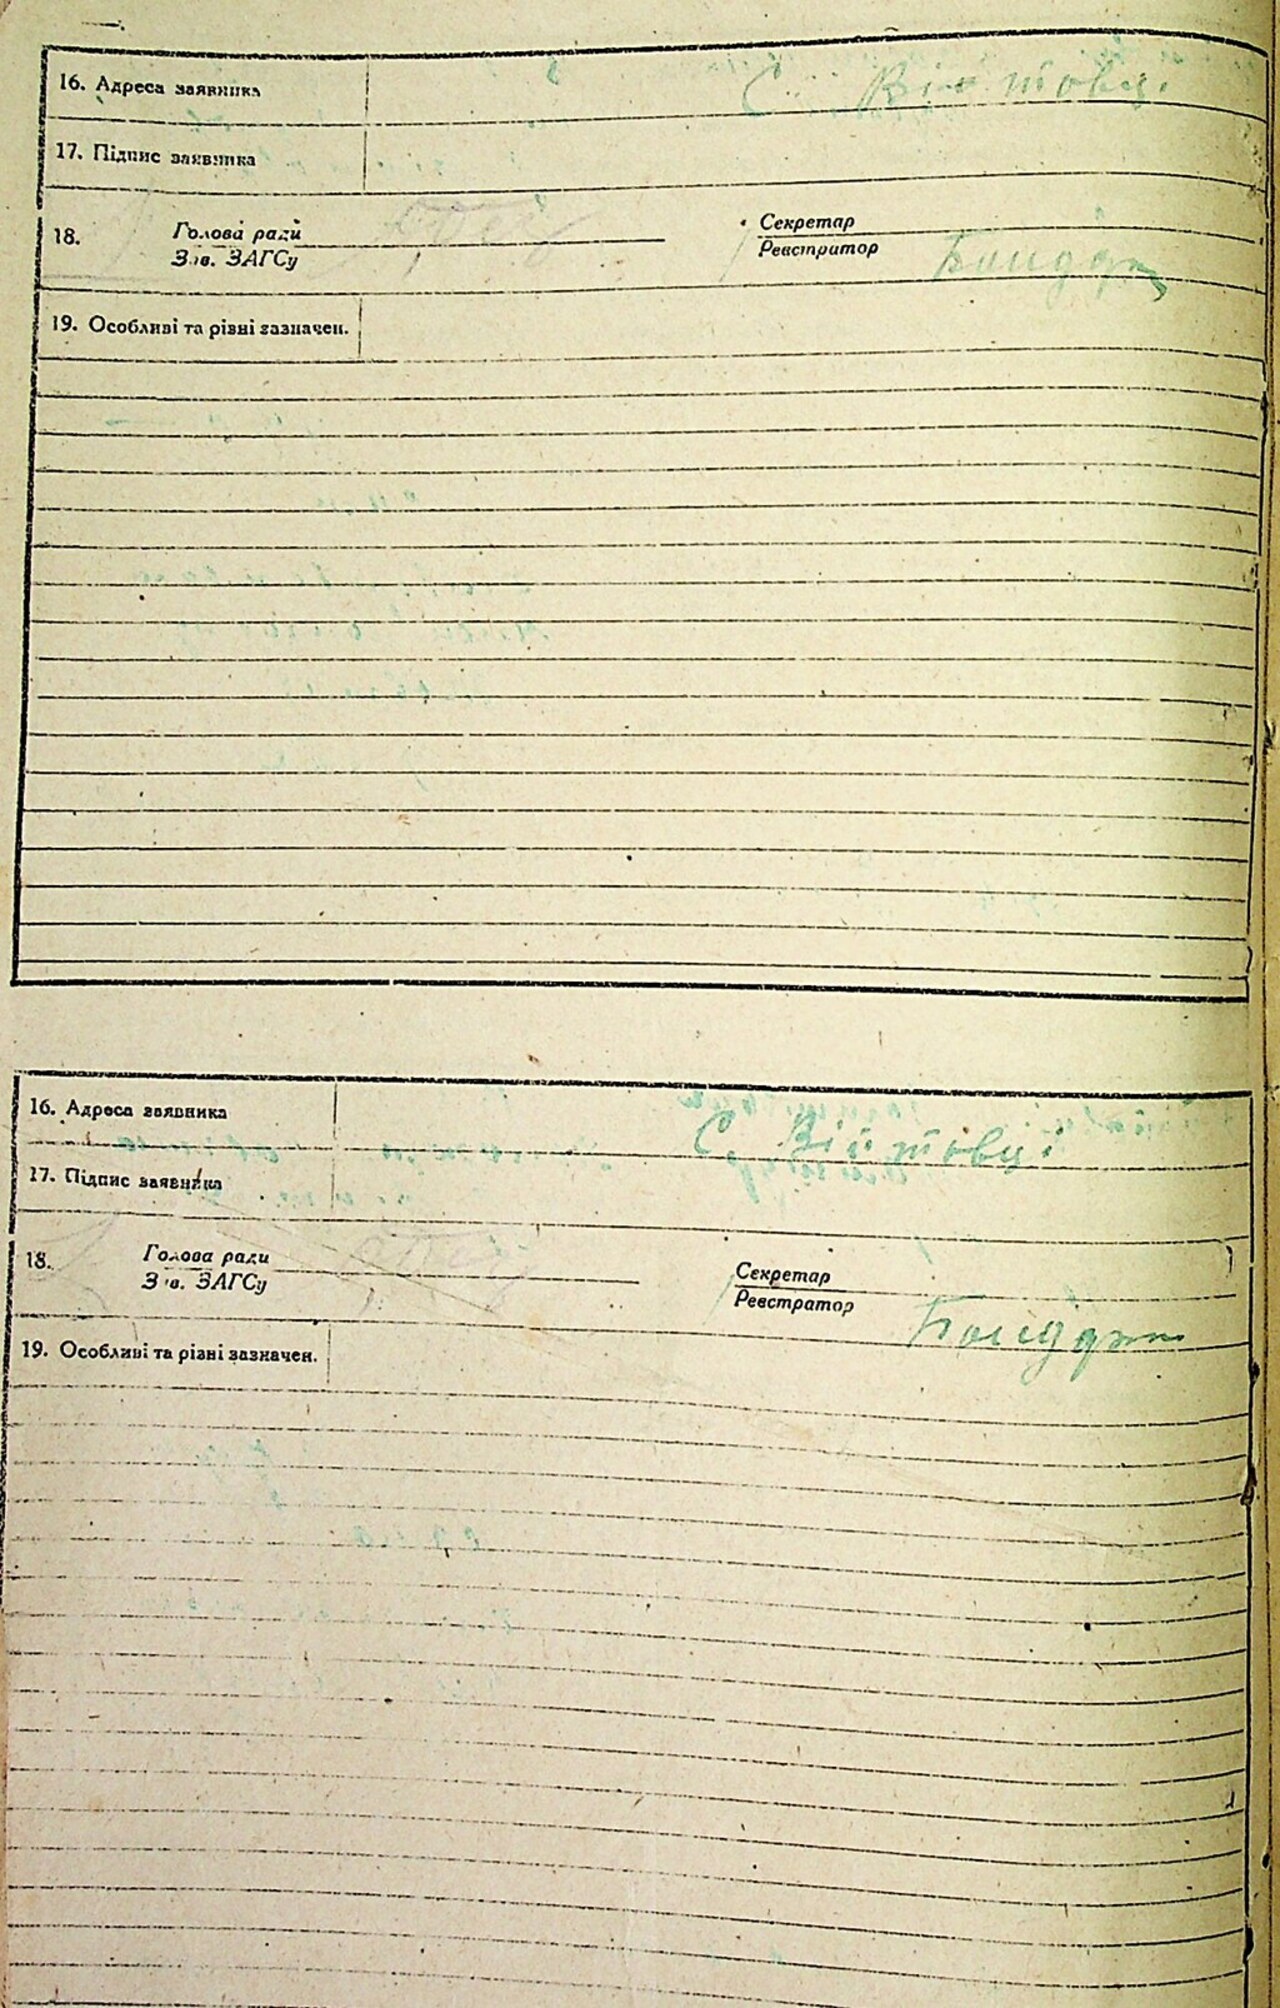 16. Адреса заявника С. Війтовці
17. Підпис заявника
18. Голова ради Секретар
Зав. ЗАГСу Реєстратор
19. Особливі та різні зазначен.
16. Адреса заявника С Війтовці
17. Підпис заявника
18. Голова ради Секретар
Зав. ЗАГСу Реєстратор
19. Особливі та різні зазначен.